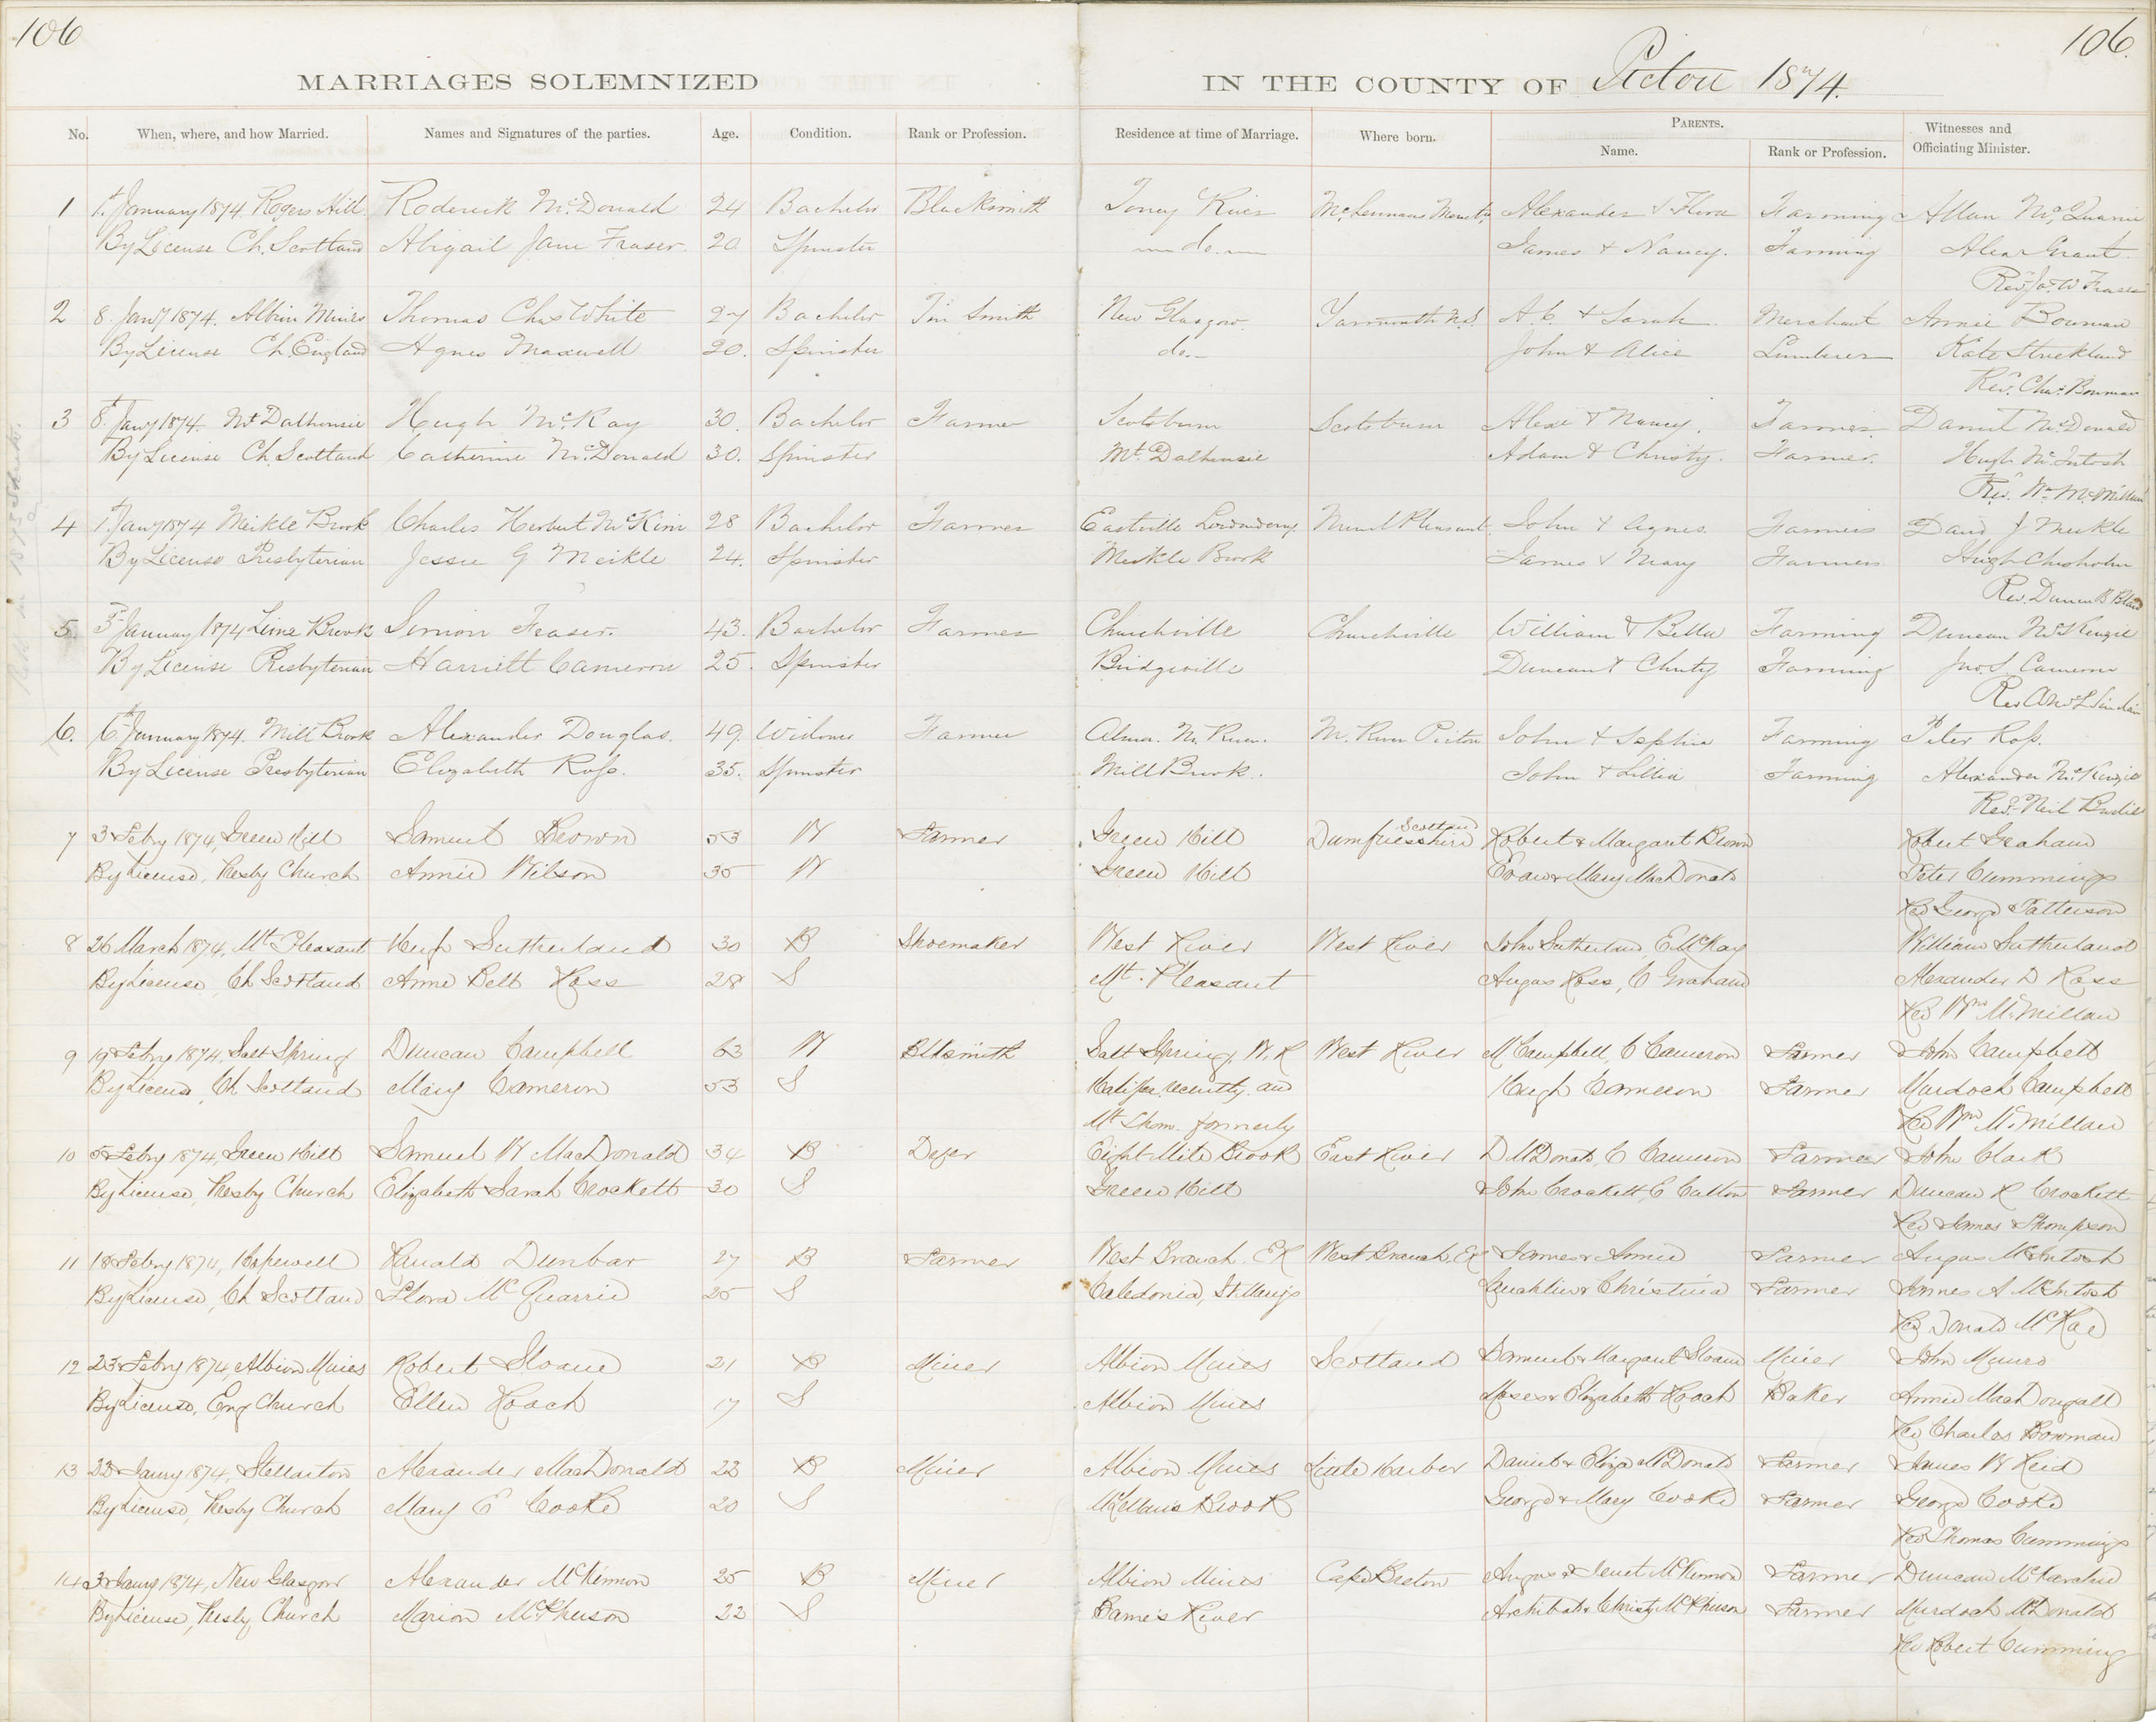 106
106.
MARRIAGES SOLEMNIZED IN THE COUNTY OF Pictou 1874.
No. When, where, and how Married. Names and Signatures of the parties. Age. Condition. Rank or Profession. Residence at time of Marriage. Where born. PARENTS. Name. Rank or Profession. Witnesses and Officiating Minister.
1 1st January 1874 Rogers Hill Roderick McDonald 24 Bachelor Blacksmith Toney River Alexander & Flora Farming Allan McQuarrie
By License Ch. Scotland Abigail Jane Fraser. 20 Spinster do. James & Nancy. Farming Alexr Grant.
Revd Jas W Fraser
2 8. Jany 1874. Albion Mines Thomas Chas White 27 Bachelor Tin Smith New Glasgow. Yarmouth N.S. A.C. & Sarah. Merchant Annie Bowman
By License Ch. England Agnes Maxwell 20. Spinster do. John & Alice Lumberer Kate Strickland
Revd. Chas. Bowman
3 8th Jany 1874. Mt Dalhousie Hugh McKay 30. Bachelor Farmer Scotsburn Scotsburn Alexr & Nancy. Farmer. Daniel McDonald
By License Ch. Scotland Catherine McDonald 30. Spinster Mt. Dalhousie Adam & Christy. Farmer. Hugh McIntosh
Rev. Wm McMillan
4 1st Jany 1874 Meikle Brook Charles Herbert McKim 28 Bachelor Farmer Eastville Londonderry Mount Pleasant John & Agnes. Farmers David J Meikle
By License Presbyterian Jessie G Meikle 24. Spinster Meikle Brook James & Mary Farmers Hugh Chisholm
Rev. Duncan B Blair
5. 3rd January 1874 Lime Brook Simon Fraser. 43. Bachelor Farmer Churchville Churchville William & Bella Farming Duncan McKenzie
By License Presbyterian Harriett Cameron 25. Spinster Bridgeville Duncan & Christy Farming Jno. S. Cameron
Rev A McL Sinclair
6. 6th January 1874. Mill Brook Alexander Douglas. 49. Widower Farmer Alma. M. River. M. River Pictou John & Sophia Farming Peter Ross.
By License Presbyterian Elizabeth Ross. 35. Spinster Mill Brook. John & Lillia Farming Alexander McKenzie
Revd. Neil Brodie
7 3 Febry 1874, Green Hill Samuel Brown 53 W Farmer Green Hill Dumfriesshire Scotland Robert & Margaret Brown Robert Graham
By License, Presby Church Annie Wilson 35 W Green Hill Evan & Mary MacDonald Peter Cummings
Rev George Patterson
8 26 March 1874, Mt Pleasant Hugh Sutherland 30 B Shoemaker West River West River John Sutherland, E McKay William Sutherland
By License, Ch Scotland Anne Bell Ross 28 S Mt. Pleasant Angus Ross, C Graham Alexander D Ross
Rev Wm McMillan
9 19 Febry 1874, Salt Spring Duncan Campbell 63 W Blksmith Salt Spring, W.R West River M Campbell, C Cameron Farmer John Campbell
By License, Ch Scotland Mary Cameron 53 S Halifax recently and Hugh Cameron Farmer Murdoch Campbell
Mt Thom. formerly Rev Wm McMillan
10 5 Febry 1874, Green Hill Samuel W MacDonald 34 B Dyer Eight Mile Brook East River D McDonald, C Cameron Farmer John Clark
By License, Presby Church Elizabeth Sarah Crockett 30 S Green Hill John Crockett, C Culton Farmer Duncan R Crockett
Rev James Thompson
11 18 Febry 1874, Hopewell Ranald Dunbar 27 B Farmer West Branch. E R West Branch, E R James & Annie Farmer Angus McIntosh
By License, Ch Scotland Flora McQuarrie 25 S Caledonia, St Marys Lauchlin & Christina Farmer James A McIntosh
Rev Donald McRae
12 23 Febry 1874, Albion Mines Robert Sloane 21 B Miner Albion Mines Scotland Samuel & Margaret Sloane Miner John Munro
By License, Eng Church Ellen Roach 17 S Albion Mines Moses & Elizabeth Roach Baker Annie MacDougall
Rev Charles Bowman
13 22 Jany 1874, Stellarton Alexander MacDonald 22 B Miner Albion Mines Little Harbor Daniel & Eliza McDonald Farmer James W Reid
By License, Presby Church Mary E Cooke 20 S McLellans Brook George & Mary Cooke Farmer George Cooke
Rev Thomas Cummings
14 3 Jany 1874, New Glasgow Alexander McKinnon 25 B Miner Albion Mines Cape Breton Angus & Jenet McKinnon Farmer Duncan McKarchie
By License, Presby Church Marion McPherson 22 S Barne's River Archibald & Christy McPherson Farmer Murdoch McDonald
Rev Robert Cumming